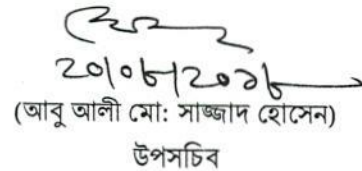 ২০/০৮/২০১৮
(আবু আলী মো: সাজ্জাদ হোসেন)
উপসচিব